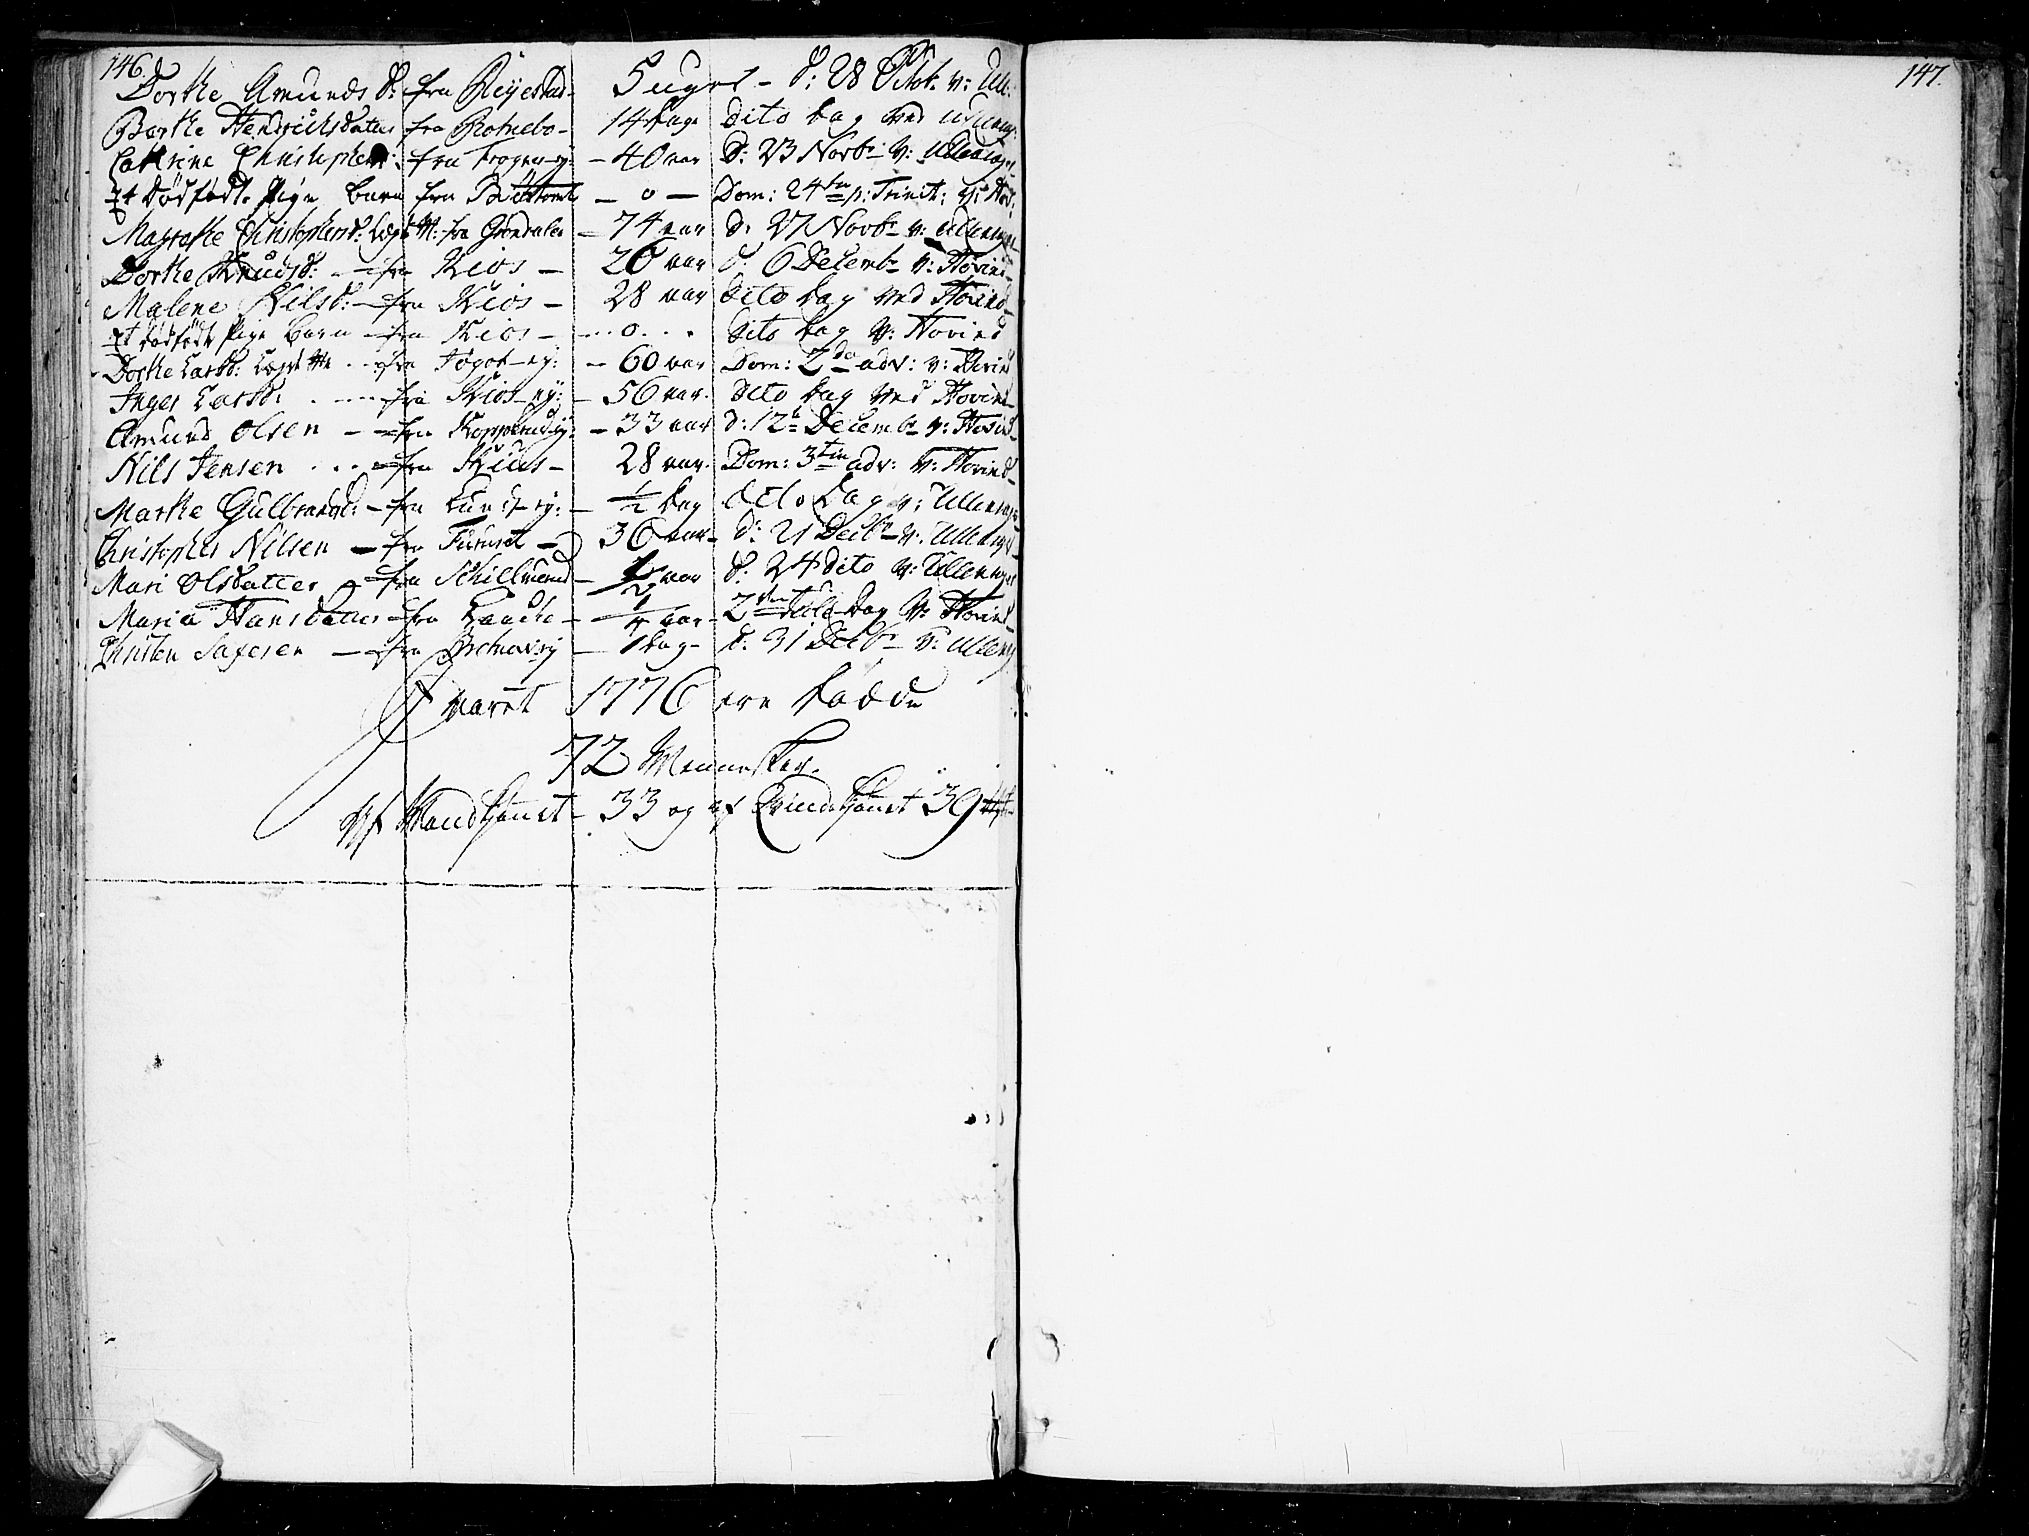 146.
Dorthe Amunds d: fra Reyestad - 5 uger - d: 28 Octob. v: Ull:
Berthe Hendrichsdatter fra Rotnebo - 14 dage dito dag ved Ullensag:
Cathrine Christophersd: fra Trogen ey: - 40 aar d: 23 Novbr v: Ullensager
Et dødfødt Pige barn fra - 0 - Dom: 24de p: Trinit: v: Hov:
Magrethe Christophersd: Lægd M: fra Grøndalen - 74 aar d: 27 Novbr v: Ullensager
Dorthe Knudsd: - fra Kiøs - 26 aar d: 6 Decembr v: Hovind
Malene Nilsd: - fra Kiøs - 28 aar dito dag ved Hovind
et dødfødt Pige barn - fra Kiøs - ... 0 ... dito dag v: Hovind
Dorthe Larsd: Lægd M: .. fra Jøgst ey: - 60 aar Dom: 2da adv: v: Hovind
Inger Larsd: ..... fra Kiøs ey: - 56 aar. dito dag ved Hovind
Amund Olsen - - fra Kopperud ey: - 33 aar d: 12te Decembr v: Hovind
Nils Jensen .... fra Kiøs - 28 aar. Dom: 3tia adv: v: Hovind
Marthe Gulbrandsd: - fra Lund ey: - 1/2 dag dito dag v: Ullensager
Christopher Nilsen - fra Furuset - 36 aar - d: 21 Decbr v: Ullensager
Mari Olsdatter - fra Schilbrerud - 1/2 aar d: 24 dito v: Ullensager
Maria Hansdatter - fra Laache - 1/4 aar - 2den Jule Dag v: Hovind
Christen Saxesen - fra ey - 1 dag - d: 31 Decbr v: Ullensag
I aaret 1776 ere døde
72 Mennesker.
Af Mandkiønet - 33 og af Qvindekiønet 39
147.